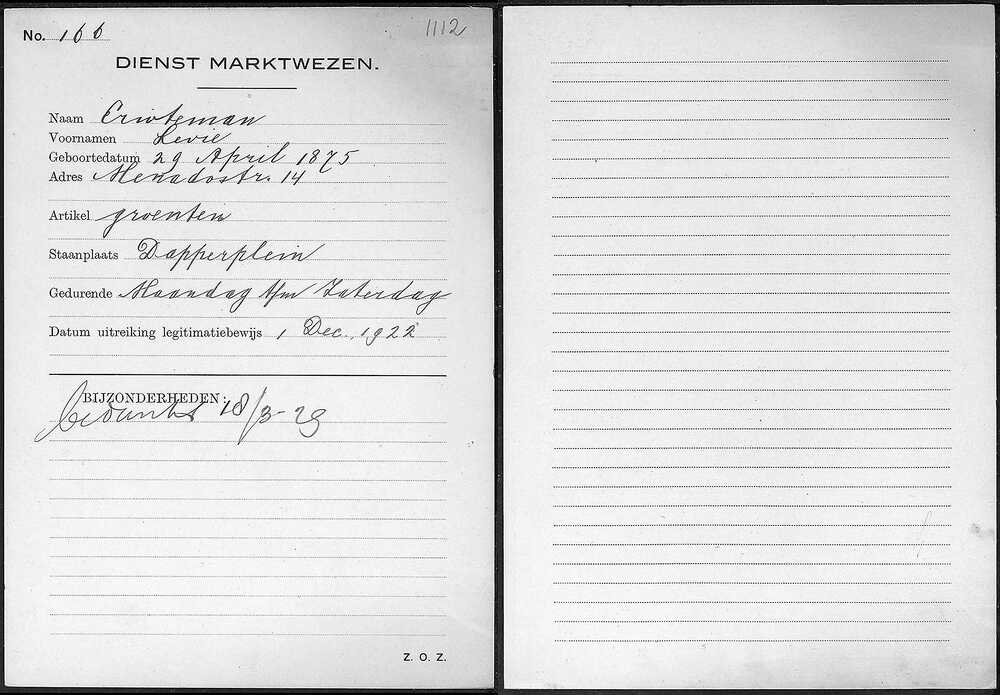 No. 166
1112
DIENST MARKTWEZEN.
Naam Criwteman
Voornamen Levie
Geboortedatum 29 April 1875
Adres Menadostr. 14
Artikel groenten
Staanplaats Dapperplein
Gedurende Maandag t/m Zaterdag
Datum uitreiking legitimatiebewijs 1 Dec. 1922
BIJZONDERHEDEN:
bedankt 18/3-29
Z. O. Z.